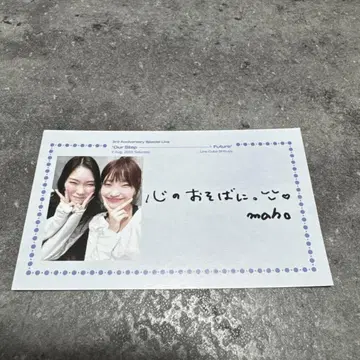 3rd Anniversary Special Live
"Our Step Future"
心のおそばに。
maho